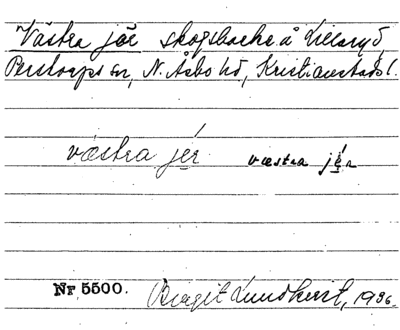 Västra jär skogsbacke å Lillaryd,
Perstorps sn, N. Åsbo hd, Kristianstads l.
væstra jér væstra jér
Nr 5500. Birgit Lundkvist, 1936.